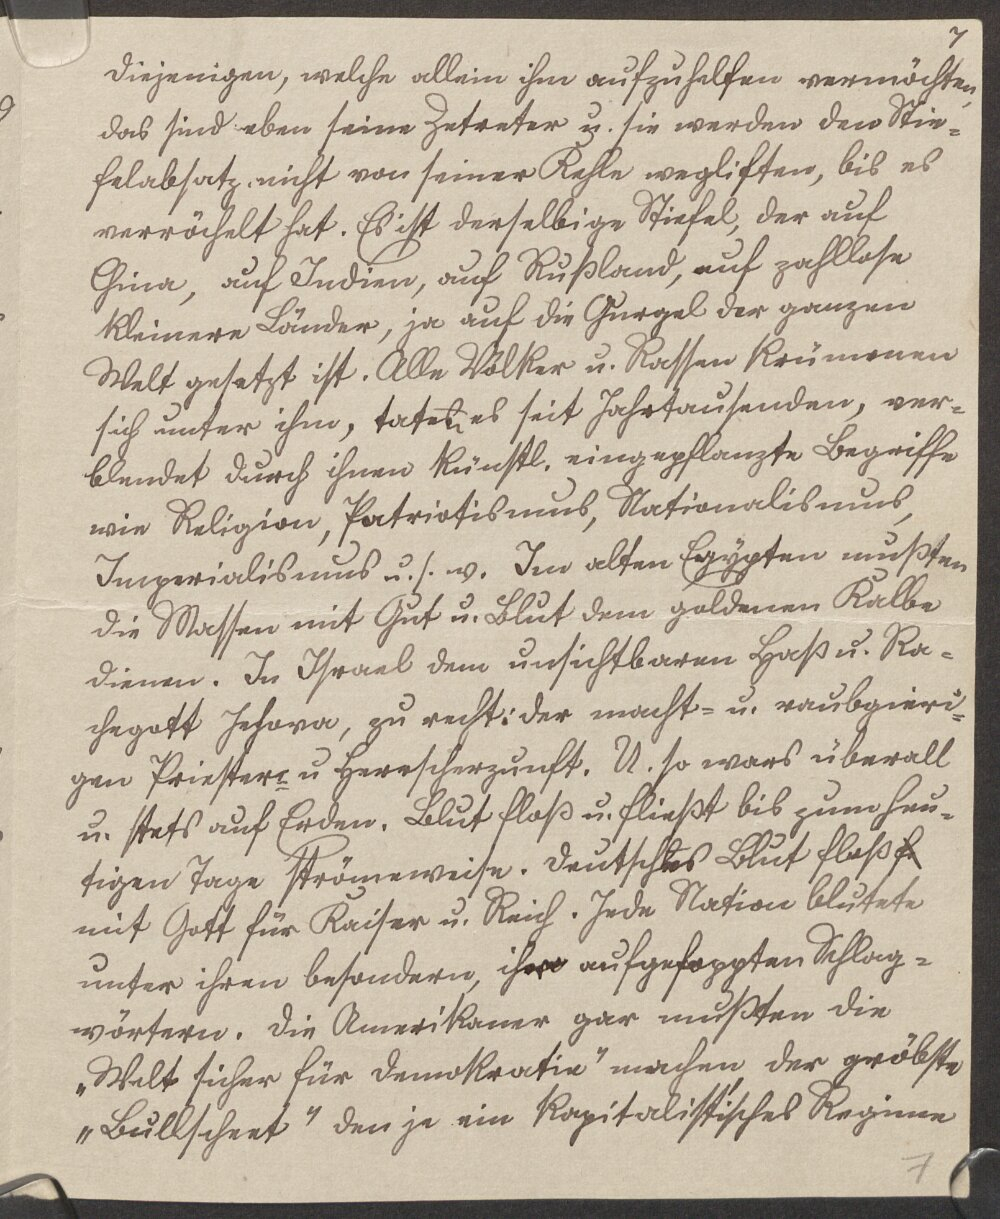 7
diejenigen, welche allein ihm aufzuhelfen vermöchten,
das sind eben seine Zetreter u. sie werden den Stie=
felabsatz nicht von seiner Kehle wegliften, bis es
verröchelt hat. Es ist derselbige Stiefel, der auf
China, auf Indien, auf Rußland, auf zahllose
kleinere Länder, ja auf die Gurgel der ganzen
Welt gesetzt ist. Alle Völker u. Rassen krümmen
sich unter ihm, taten es seit Jahrtausenden, ver=
blendet durch ihnen künstl. eingepflanzte Begriffe
wie Religion, Patriotismus, Nationalismus,
Imperialismus u.s.w. Im alten Egypten mußten
die Massen mit Gut u. Blut dem goldenen Kalbe
dienen. In Israel dem unsichtbaren Haß u. Ra=
chegott Jehova, zu recht: der macht= u. raubgieri=
gen Priester= u Herrscherzunft. U. so wars überall
u. stets auf Erden. Blut floß u. fließt bis zum heu=
tigen Tage strömeweise. Deutsches Blut floß
mit Gott für Kaiser u. Reich. Jede Nation blutete
unter ihren besondern, ihr aufgefoppten Schlag=
wörtern. Die Amerikaner gar mußten die
„Welt sicher für Demokratie" machen der gröbste
„Bullscheet" den je ein kapitalistisches Regime
7